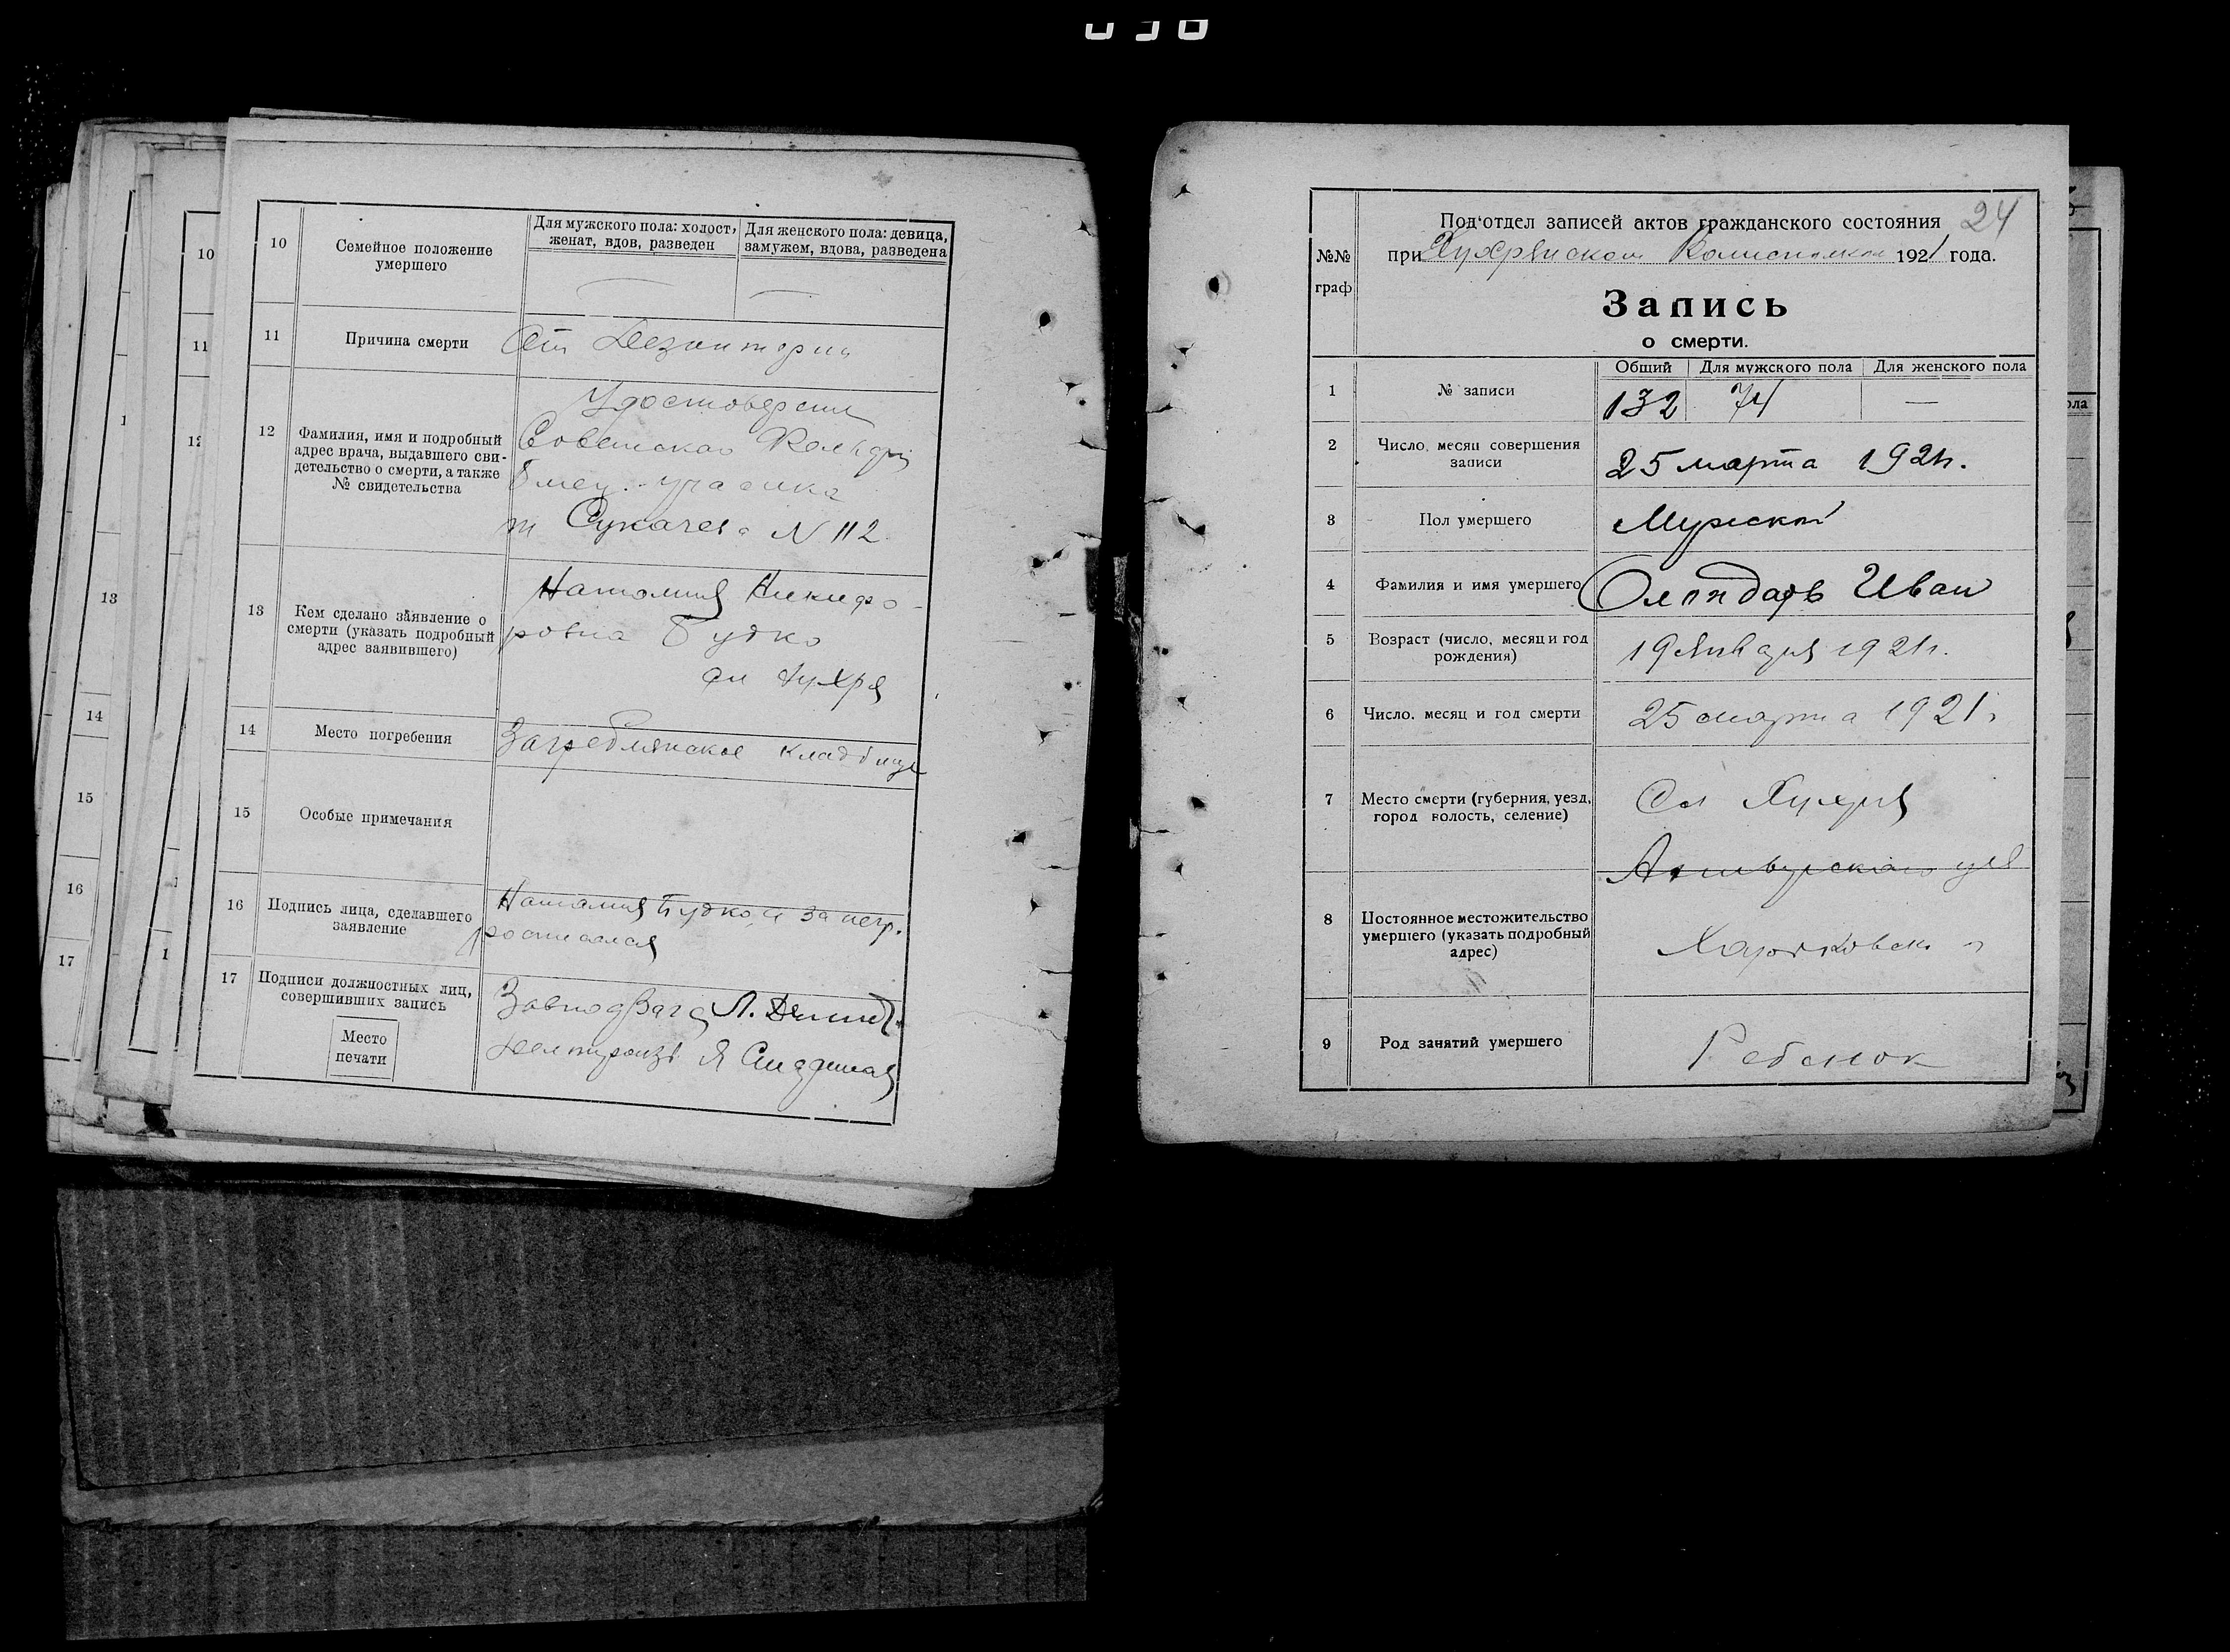 10
Семейное положение
умершего
Для мужского пола: холост,
женат, вдов, разведен
Для женского пола: девица,
замужем, вдова, разведена
11
Причина смерти
От Дезинтерии
12
Фамилия, имя и подробный
адрес врача, выдавшего сви-
детельство о смерти, а также
№ свидетельства
Удостоверение
Советская
участка
Сукачева N 112
13
Кем сделано заявление о
смерти (указать подробный
адрес заявившего)
Наталия Никифо-
ровна Будко
сл Хухря
14
Место погребения
Загреблянское кладбище
15
Особые примечания
16
Подпись лица, сделавшего
заявление
Наталия Будко, а за негр.
17
Подписи должностных лиц,
совершивших запись
Место
печати
Л.
Я
10
11
1
12
13
14
15
16
17
1
24
№№
граф
Под‘отдел записей актов гражданского состояния
при Хухрянском 1921 года.
Запись
о смерти.
Общий
Для мужского пола
Для женского пола
1
№ записи
132
74
—
2
Число, месяц совершения
записи
25 марта 1921г.
3
Пол умершего
Мужской
4
Фамилия и имя умершего
Иван
5
Возраст (число, месяц и год
рождения)
19 Января 1921г.
6
Число, месяц и год смерти
25 марта 1921г
7
Место смерти (губерния, уезд,
город волость, селение)
Сл Хухря
Ахтырского уез
8
Постоянное местожительство
умершего (указать подробный
адрес)
Харьковск г
9
Род занятий умершего
Ребенок